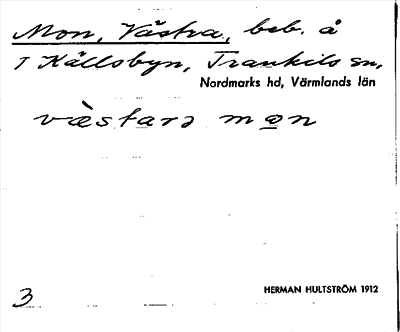 Mon, Västra, beb. å
1 Källsbyn, Trankils sn,
Nordmarks hd, Värmlands län
væstarə mon
HERMAN HULTSTRÖM 1912
3